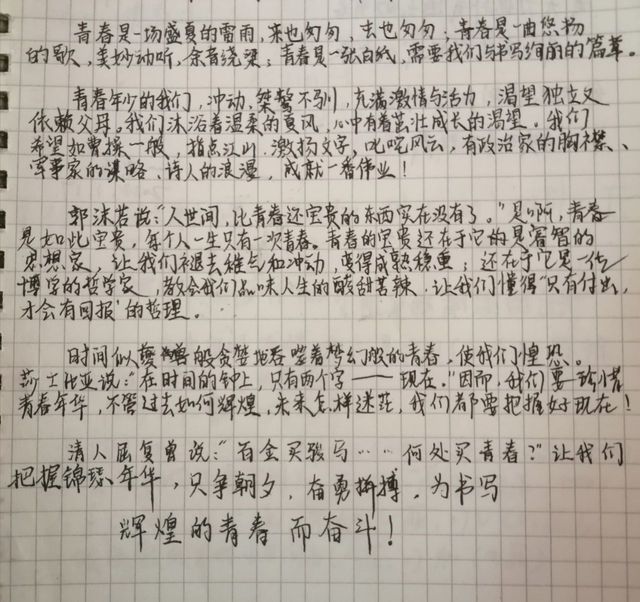 青春是一场盛夏的雷雨，来也匆匆，去也匆匆；青春是一曲悠扬
的歌，美妙动听，余音绕梁；青春是一张白纸，需要我们书写绚丽的篇章。
青春年少的我们，冲动，桀骜不驯，充满激情与活力，渴望独立又
依赖父母。我们沐浴着温柔的夏风，心中有着茁壮成长的渴望。我们
希望如曹操一般，指点江山，激扬文字，叱咤风云，有政治家的胸襟、
军事家的谋略、诗人的浪漫，成就一番伟业！
郭沫若说：“人世间，比青春还宝贵的东西实在没有了。”是啊，青春
是如此宝贵，每个人一生只有一次青春。青春的宝贵还在于它的是睿智的
思想家，让我们褪去稚气和冲动，变得成熟稳重；还在于它是一位
博学的哲学家，教会我们品味人生的酸甜苦辣，让我们懂得“只有付出，
才会有回报”的哲理。
时间似般贪婪地吞噬着梦幻般的青春，使我们惶恐。
莎士比亚说：“在时间的钟上，只有两个字——现在。”因而，我们要珍惜
青春年华，不管过去如何辉煌，未来怎样迷茫，我们都要把握好现在！
清人屈复曾说：“百金买骏马……何处买青春？”让我们
把握锦瑟年华，只争朝夕，奋勇拼搏，为书写
辉煌的青春而奋斗！